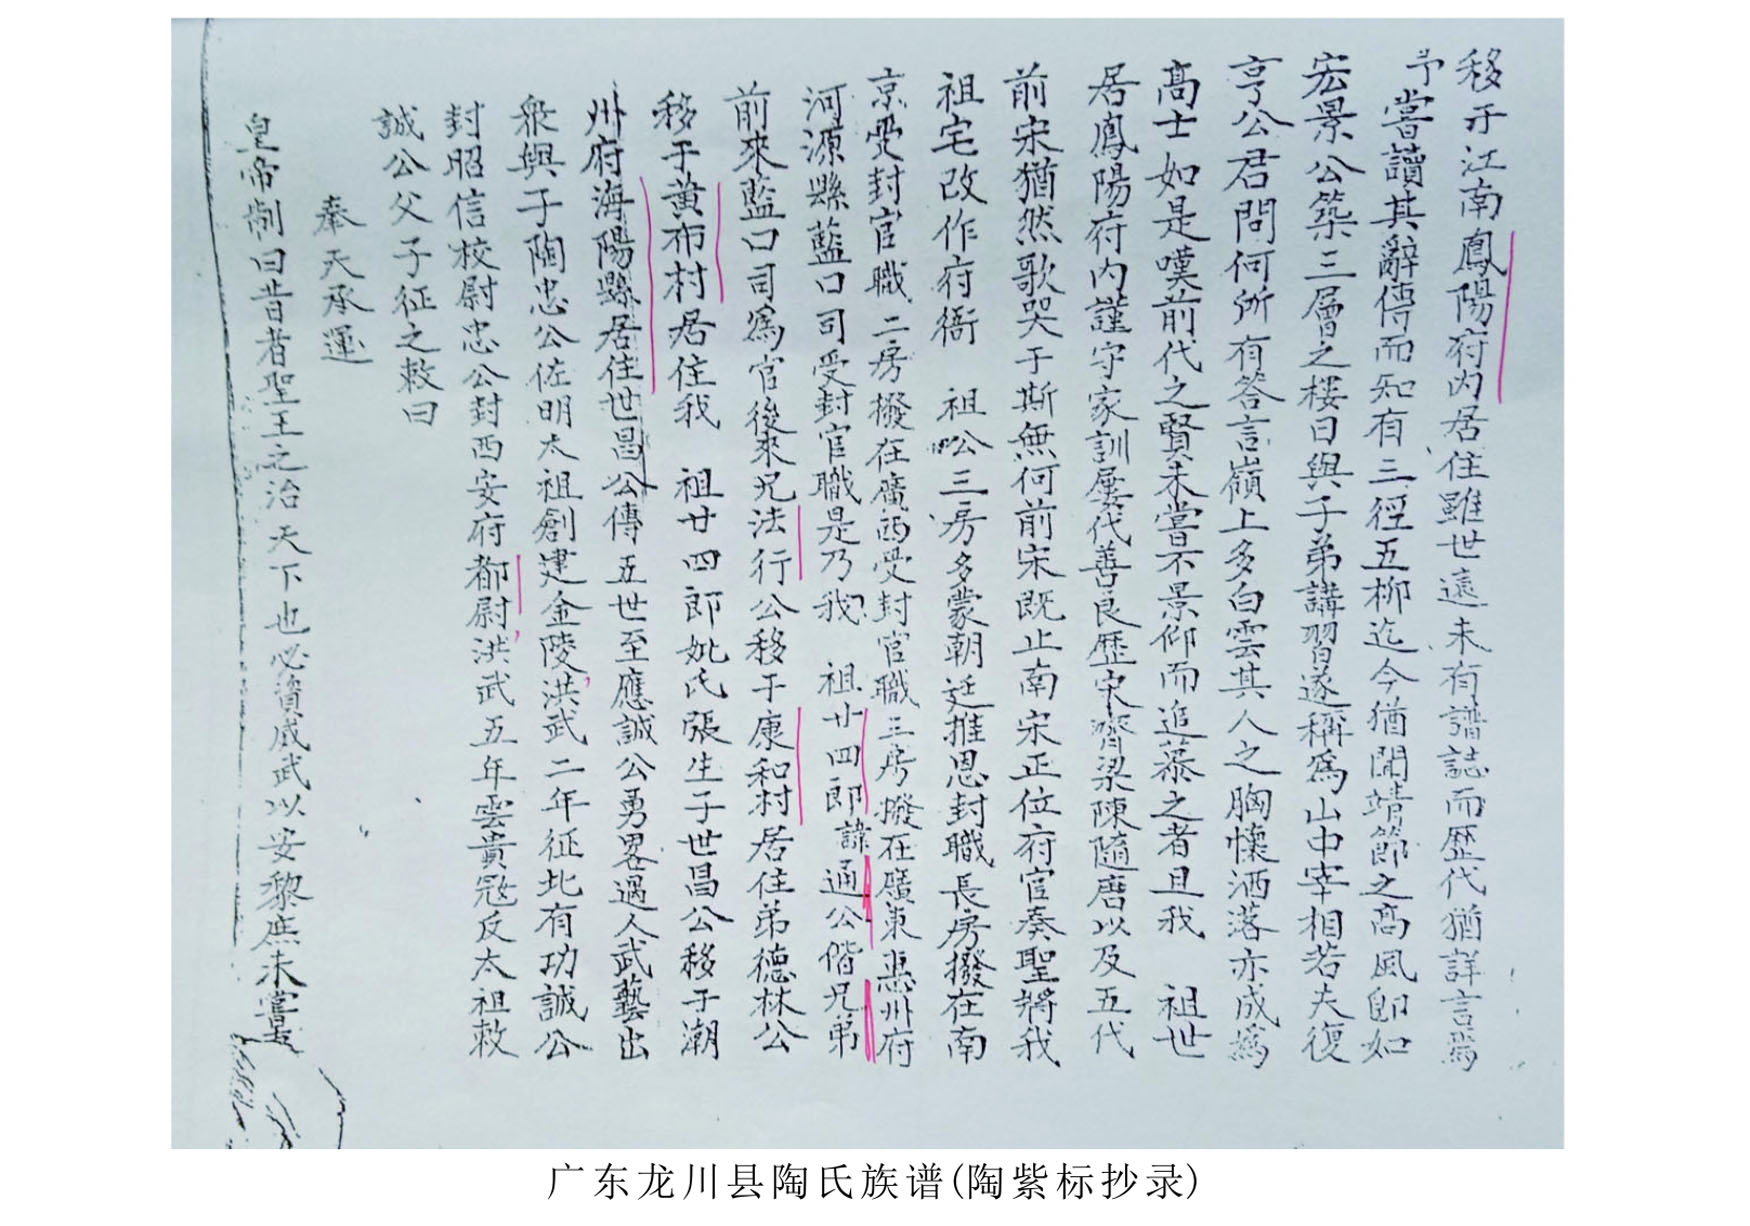 移于江南鳳陽府内居住雖世遠未有譜誌而歷代猶詳言焉
予嘗讀其辭傳而知有三徑五柳迄今猶聞靖節之高風卽如
宏景公築三層之楼日與子弟講習遂稱爲山中宰相若夫復
亨公君問何所有答言嶺上多白雲其人之胸懷洒落亦成爲
高士如是嘆前代之賢未嘗不景仰而追慕之者且我 祖世
居鳳陽府内謹守家訓屢代善良歷宋齊梁陳隨唐以及五代
前宋猶然歌哭于斯無何前宋既止南宋正位府官奏聖將我
祖宅改作府衙 祖公三房多蒙朝廷推恩封職長房撥在南
京受封官職二房撥在廣西受封官職三房撥在廣東惠州府
河源縣藍口司受封官職是乃我 祖廿四郎諱通公偕兄弟
前來藍口司爲官後來兄法行公移于康和村居住弟德林公
移于黄布村居住我 祖廿四郎妣氏張生于世昌公移于潮
州府海陽縣居住世昌公傳五世至應誠公勇畧過人武藝出
衆與子陶忠公佐明太祖創建金陵洪武二年征北有功誠公
封昭信校尉忠公封西安府都尉洪武五年雲貴冦反太祖敕
誠公父子征之敕曰
奉天承運
皇帝制曰昔者聖王之治天下也必資威武以安黎庶未嘗
广东龙川县陶氏族谱(陶紫标抄录)